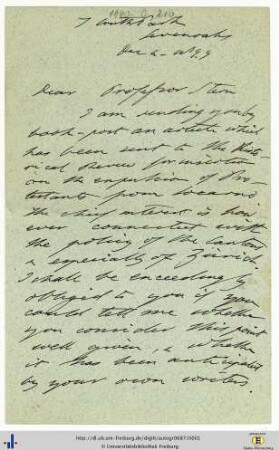 7 South Park
Sevenoaks
Dec 2
Dear Professor Stern
I am sending you by
book-post an article which
has been sent to the Histo-
rical Review for insertion
on the expulsion of Pro-
testants from Locarno
the chief interest is how
ever connected with
the policy of the Cantons
& especially of Zürich.
I shall be exceedingly
obliged to you if you
could tell me whether
you consider this point
well given, & whether
it has been anticipated
by your own writers.
http://dl.ub.uni-freiburg.de/diglit/autogr0687/0001
© Universitätsbibliothek Freiburg